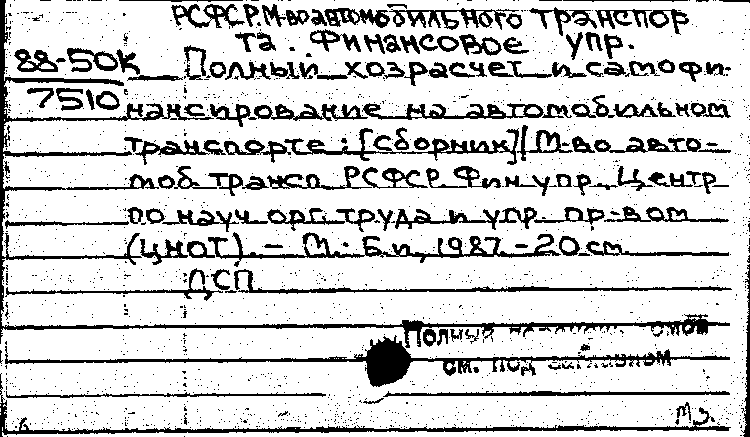 РСФСР. М-во автомобильного транспор
та. Финансовое упр.
88-50К
7510
Полный хозрасчет и самофи-
нансирование на автомобильном
транспорте : [Сборник] / М-во авто-
моб. трансп. РСФСР. Фин. упр., Центр
по науч. орг. труда и упр. пр-вом
(ЦНОТ). - М. : Б.и., 1987. - 20 см.
ДСП
Полный
см. под заглавном
М З.